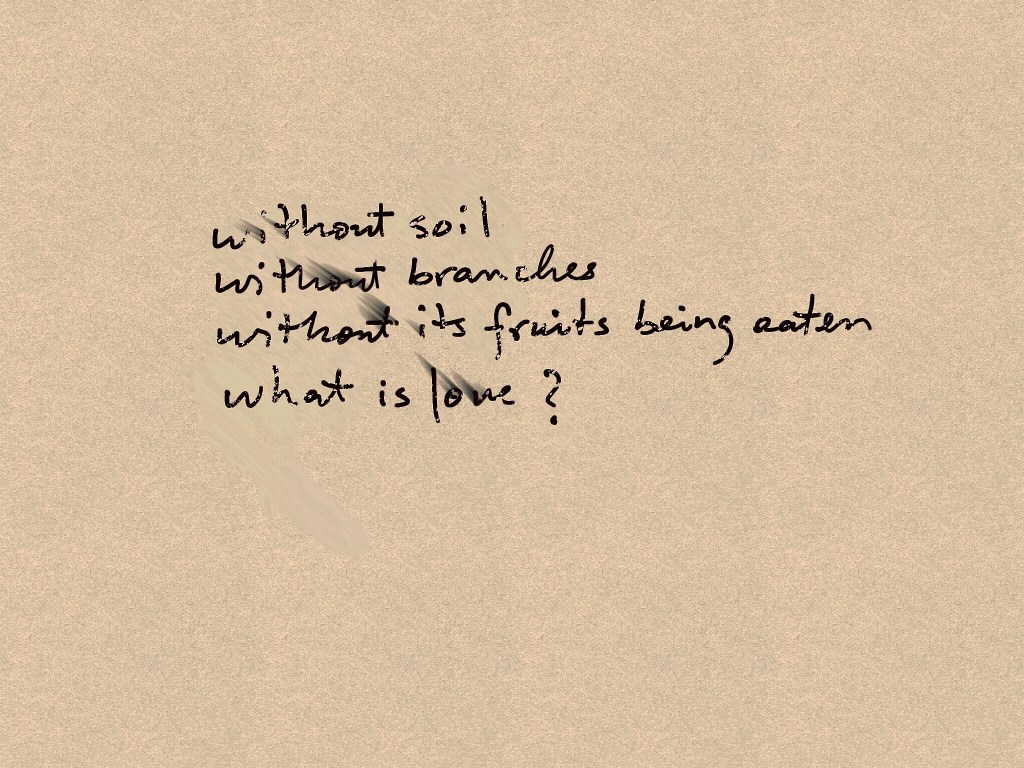 without soil
without branches
without its fruits being eaten
what is love ?